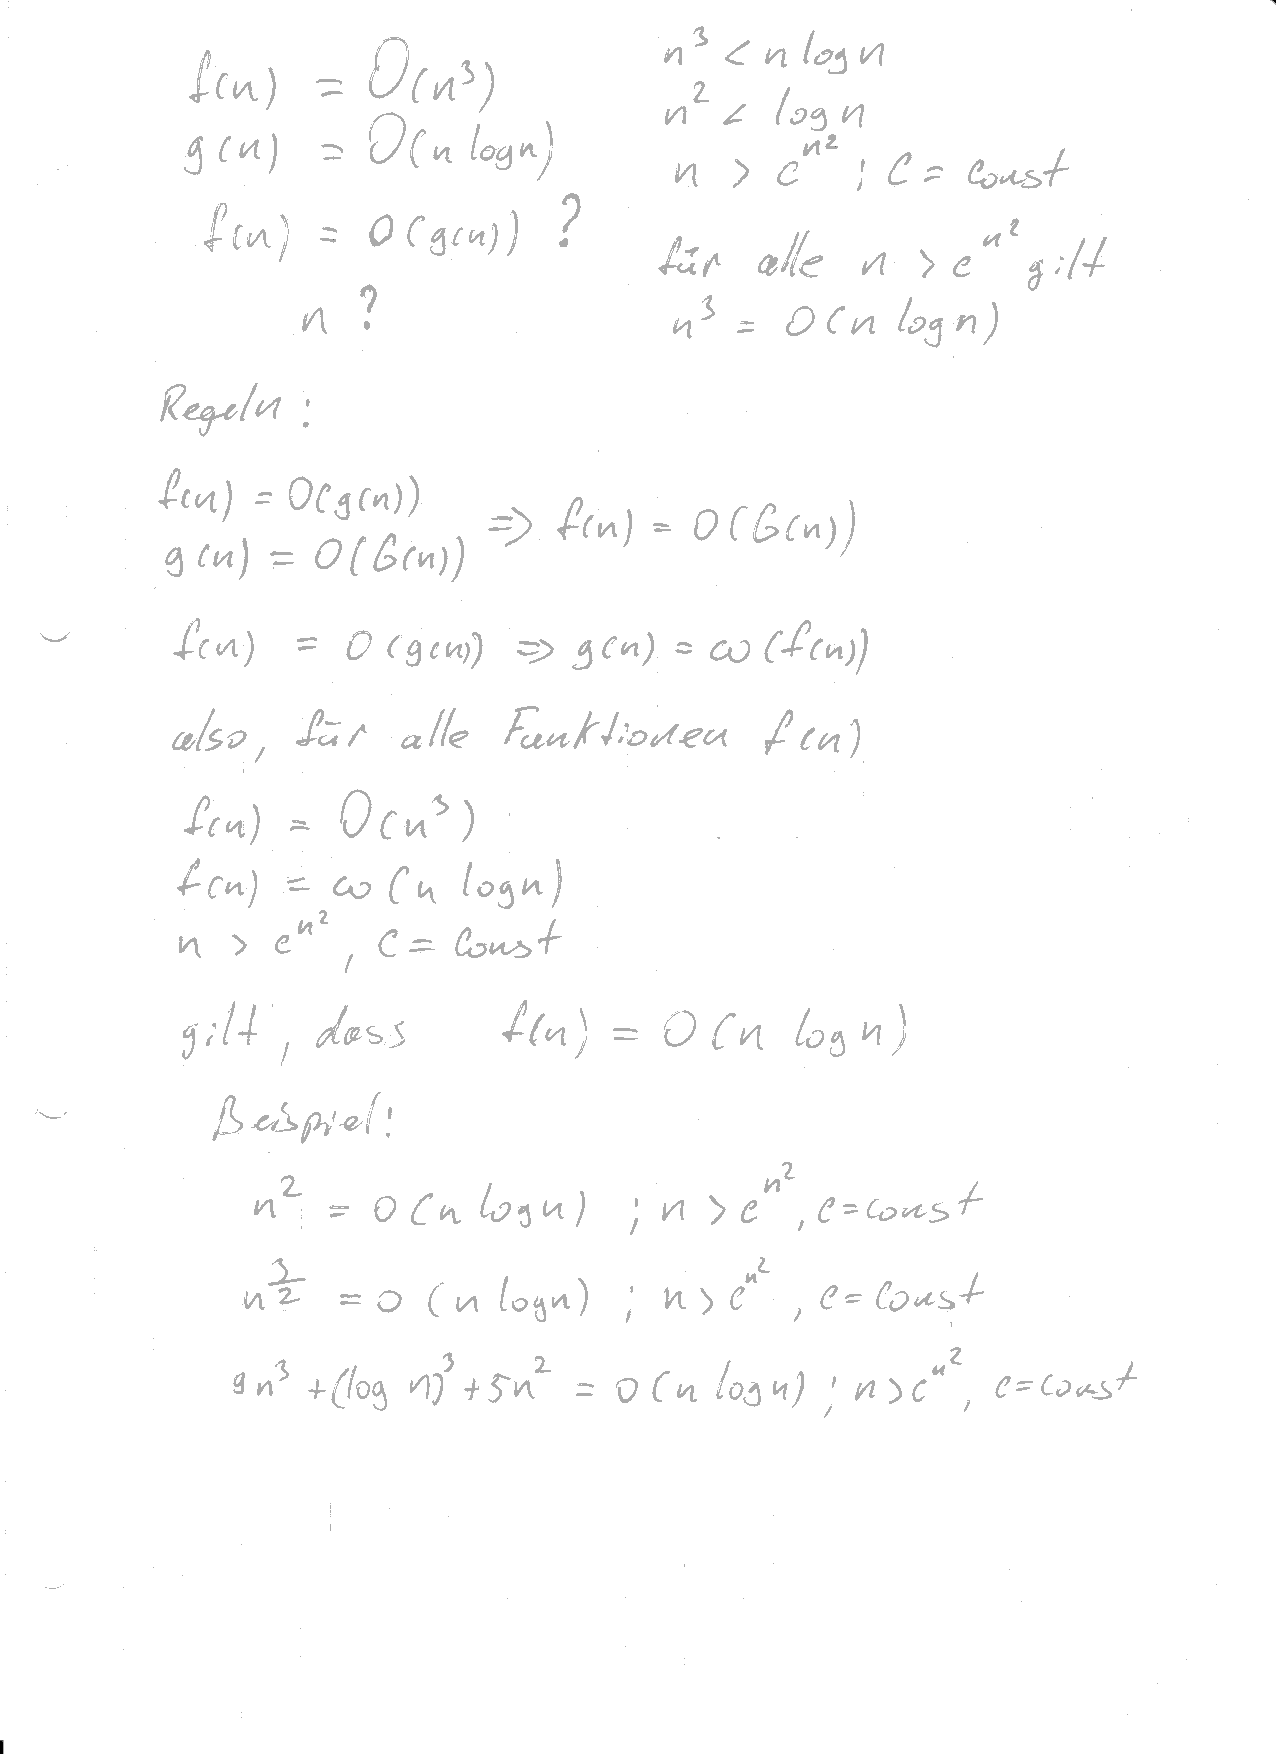 f(n) = O(n³)
g(n) = O(n log n)
f(n) = O(g(n)) ?
n ?
n³ < n log n
n² < log n
n > c^n² ; C = Const
für alle n > c^n² gilt
n³ = O(n log n)
Regeln:
f(n) = O(g(n))
g(n) = O(G(n)) => f(n) = O(G(n))
f(n) = O(g(n)) => g(n) = ω(f(n))
also, für alle Funktionen f(n)
f(n) = O(n³)
f(n) = ω(n log n)
n > c^n², C = Const
gilt, dass f(n) = O(n log n)
Beispiel:
n² = O(n log n) ; n > c^n², c = const
n^3/2 = O(n log n) ; n > c^n², c = Const
9n³ + (log n)³ + 5n² = O(n log n) ; n > c^n², c = const